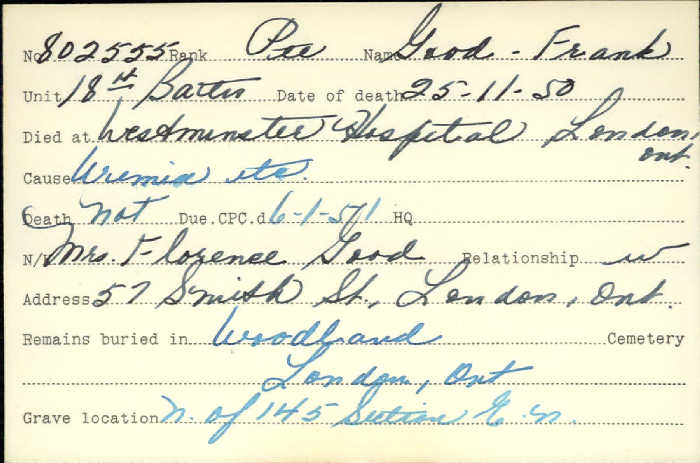 No 802555 Rank Pte Name Good - Frank
Unit 18th Battn Date of death 25-11-50
Died at Westminster Hospital London
ont.
Cause Uremia etc.
Death not Due.CPC.d 6-1-51 HQ
N/K Mrs. Florence Good Relationship w
Address 57 Smith St., London, Ont.
Remains buried in Woodland Cemetery
London, Ont
Grave location N. of 145 Section E. N.